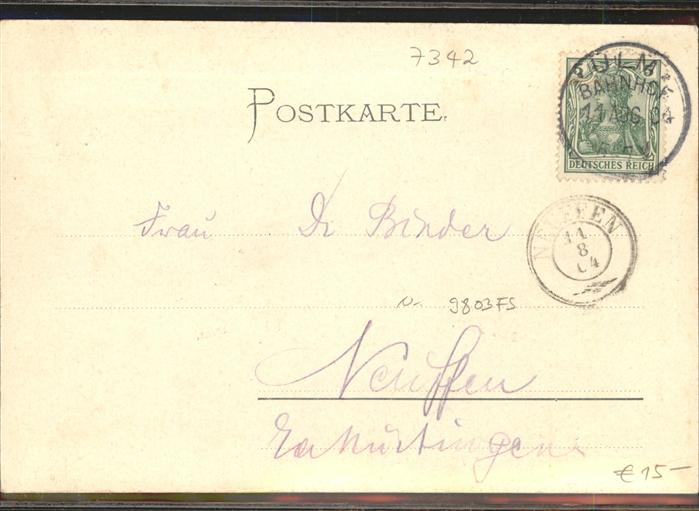 7342
ULM
BAHNHOF
11 AUG 04
DEUTSCHES REICH
POSTKARTE.
Frau Dr Binder
NEUFFEN
11
8
04
N- 9803FS
Neuffen
€ 15-